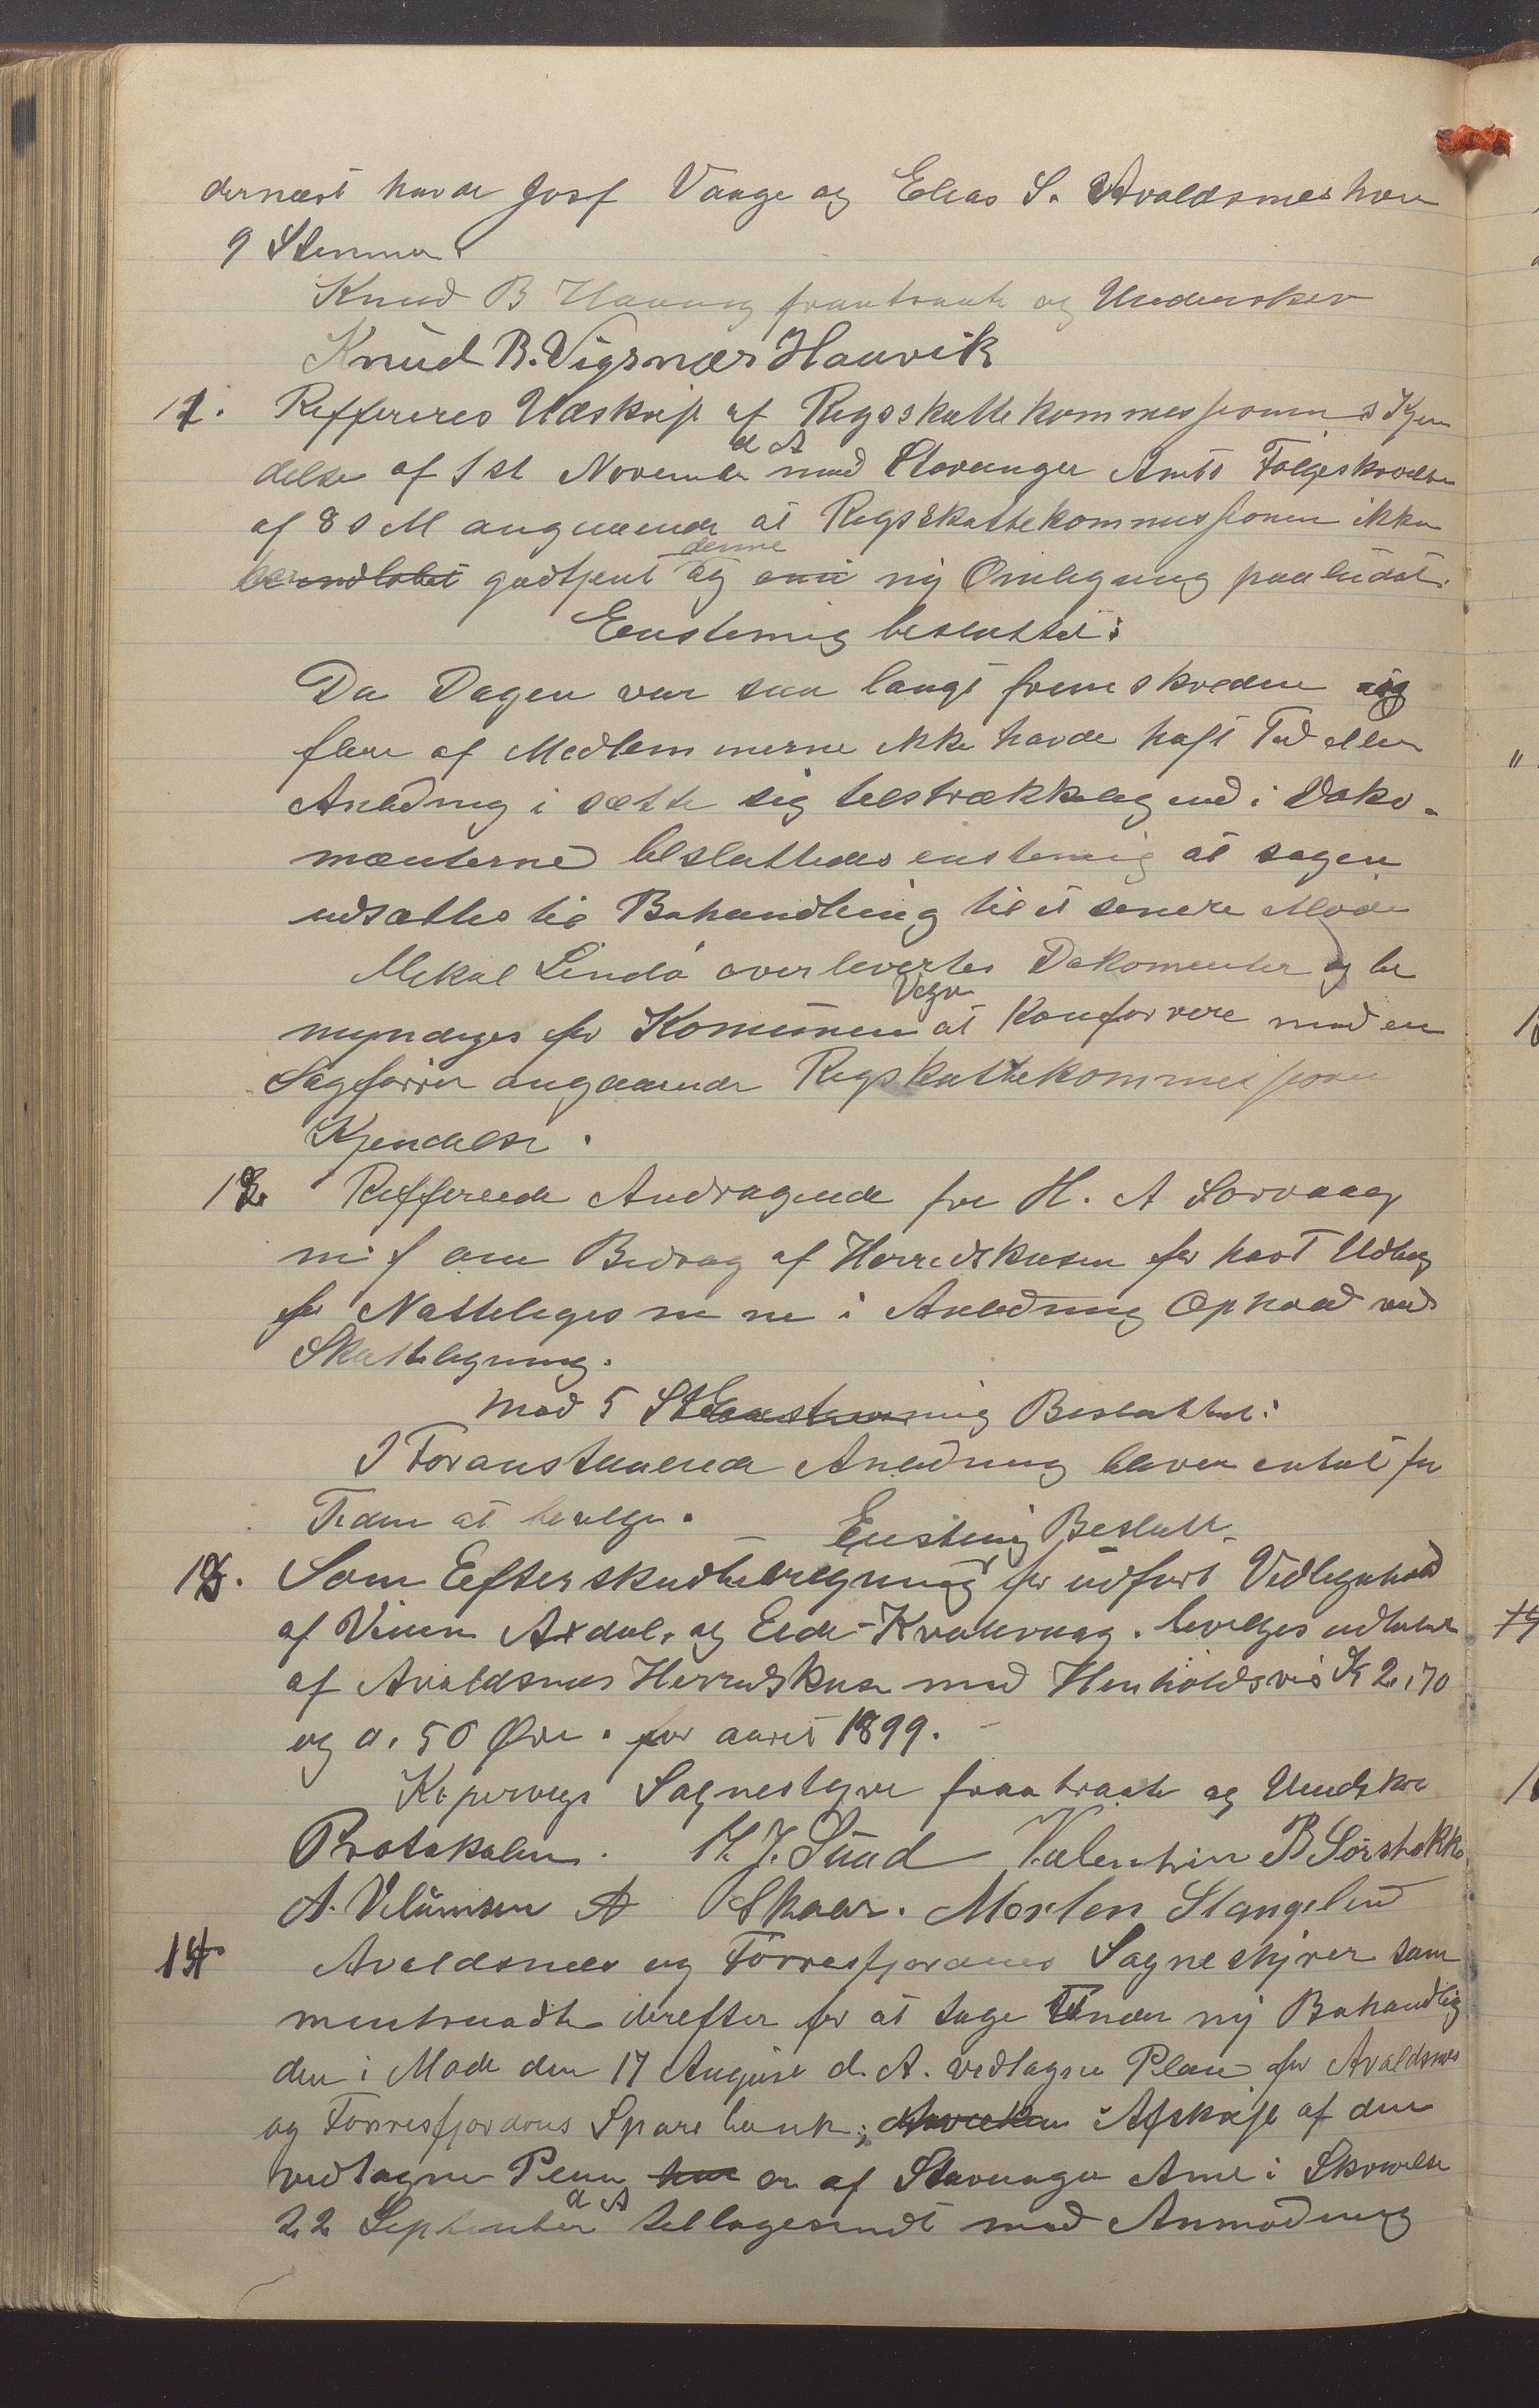 dernæst havde Josf Vaage og Elias S. Avaldsnes hver
9 Stemmer
Knud B Hauvig fraatraadte og Underskrev
Knud B. Vigsnæs Hauvik
11. Reffereres Udskrift af Rigsskattekommissionens Kjen
delse af 1st November d A med Stavanger Amts Følgeskrivelse
af 8 s M angaaende at Rigsskattekommissionen ikke
godtjent denne og ny Omligning paabudat.
Eenstemig besluttet:
Da Dagen var saa langt fremskreden og
flere af Medlemmerne ikke havde haft Tid eller
Anledning i sætte sig telstrækkelig ind i Doko-
menterne besluttedes enstemig at sagen
udsættes til Behandling til et senere Møde
Mikal Lindø overlevertes Dokomenter og be
myndiges for Komunens Vegn at Konforere med en
Sagfører angaaende Rigsskattekommissione
Kjendelse.
12 Reffererede Andragende fra H. A Sørvaag
m. f om Bidrag af Herredskasen for havt Udlæg
for Natteligesmene i Anledning Ophold ved
Skatteligning.
Mod 5 St Eenstemmig Besluttet:
I Foranstaaende Anledning bliver intet for
Tiden at bevilge.
Enstemig Beslutt
13. Som Efterskudbevilgning for udført Vedligehold
af Veien Axdal, og Eide-Kvalevaag. bevilges udbetalt
af Avaldsnes Herredskase med Henholdsvis Kr 2,70
og 0. 50 Øre. for aaret 1899. -
Kopervigs Sognestyre fraatraadte og Undskre
Protokolen. H. J. Sund Valentin B Sørstokke
A. Velûmsen A Skaar. Morten Stangeland
14 Avaldsnes og Torvesfjordens Sognestyrer sam
mentraadte derefter for at tage Under ny Behandlig
den i Møde den 17 August d. A. vedtagne Plan for Avaldsnes
og Torvesfjordens Sparebank; Afskrift af den
vedtagne Plan er af Stavanger Amt i Skrivelse
22 September d A tilbagesendt med Anmodning